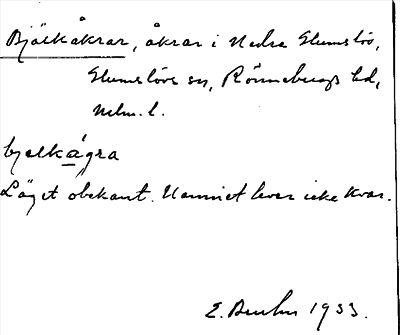 Bjälkåkrar, åkrar i Nedra Glumslöv,
Glumslövs sn, Rönnebergs hd,
Malm. l.
bjelkågra
Läget obekant. Namnet lever icke kvar.
E. 1933.